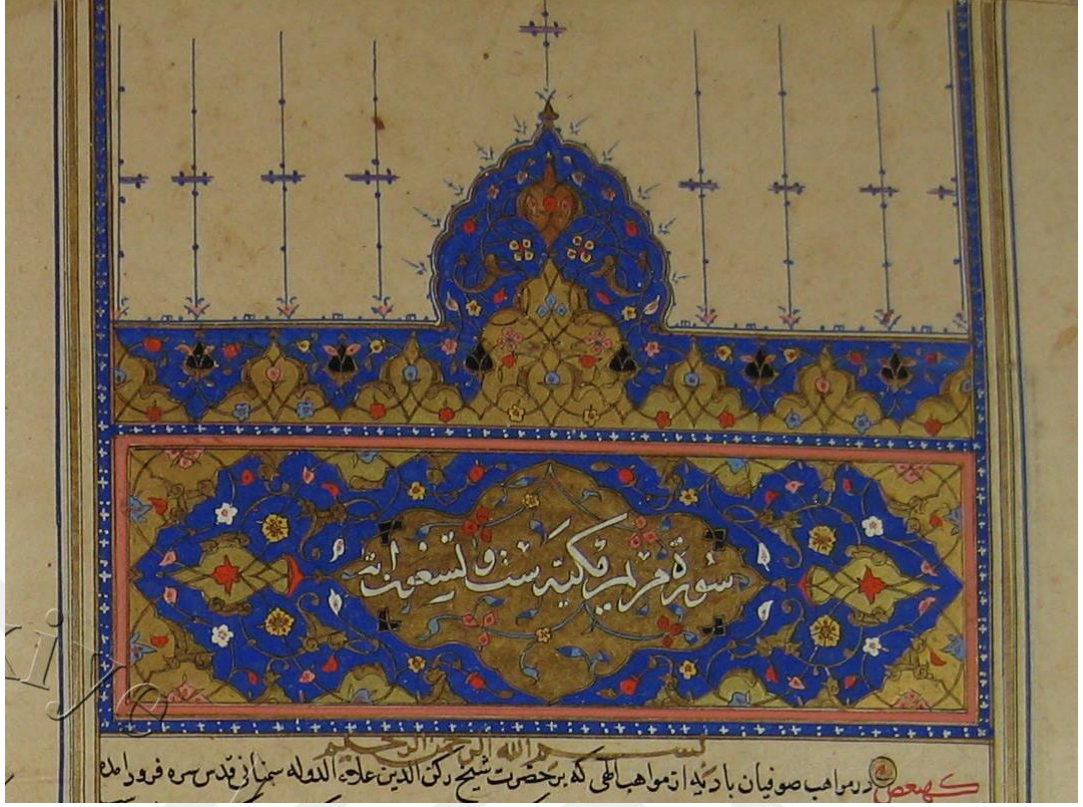 سورة مريم مكية ست وتسعون اية
بسم الله الرحمن الرحيم
كهيعص در مواهب صوفيان باديه از مواهب الهى كه بر حضرت شيخ ركن الدين علاء الدوله سمنانى قدس سره فرود امده